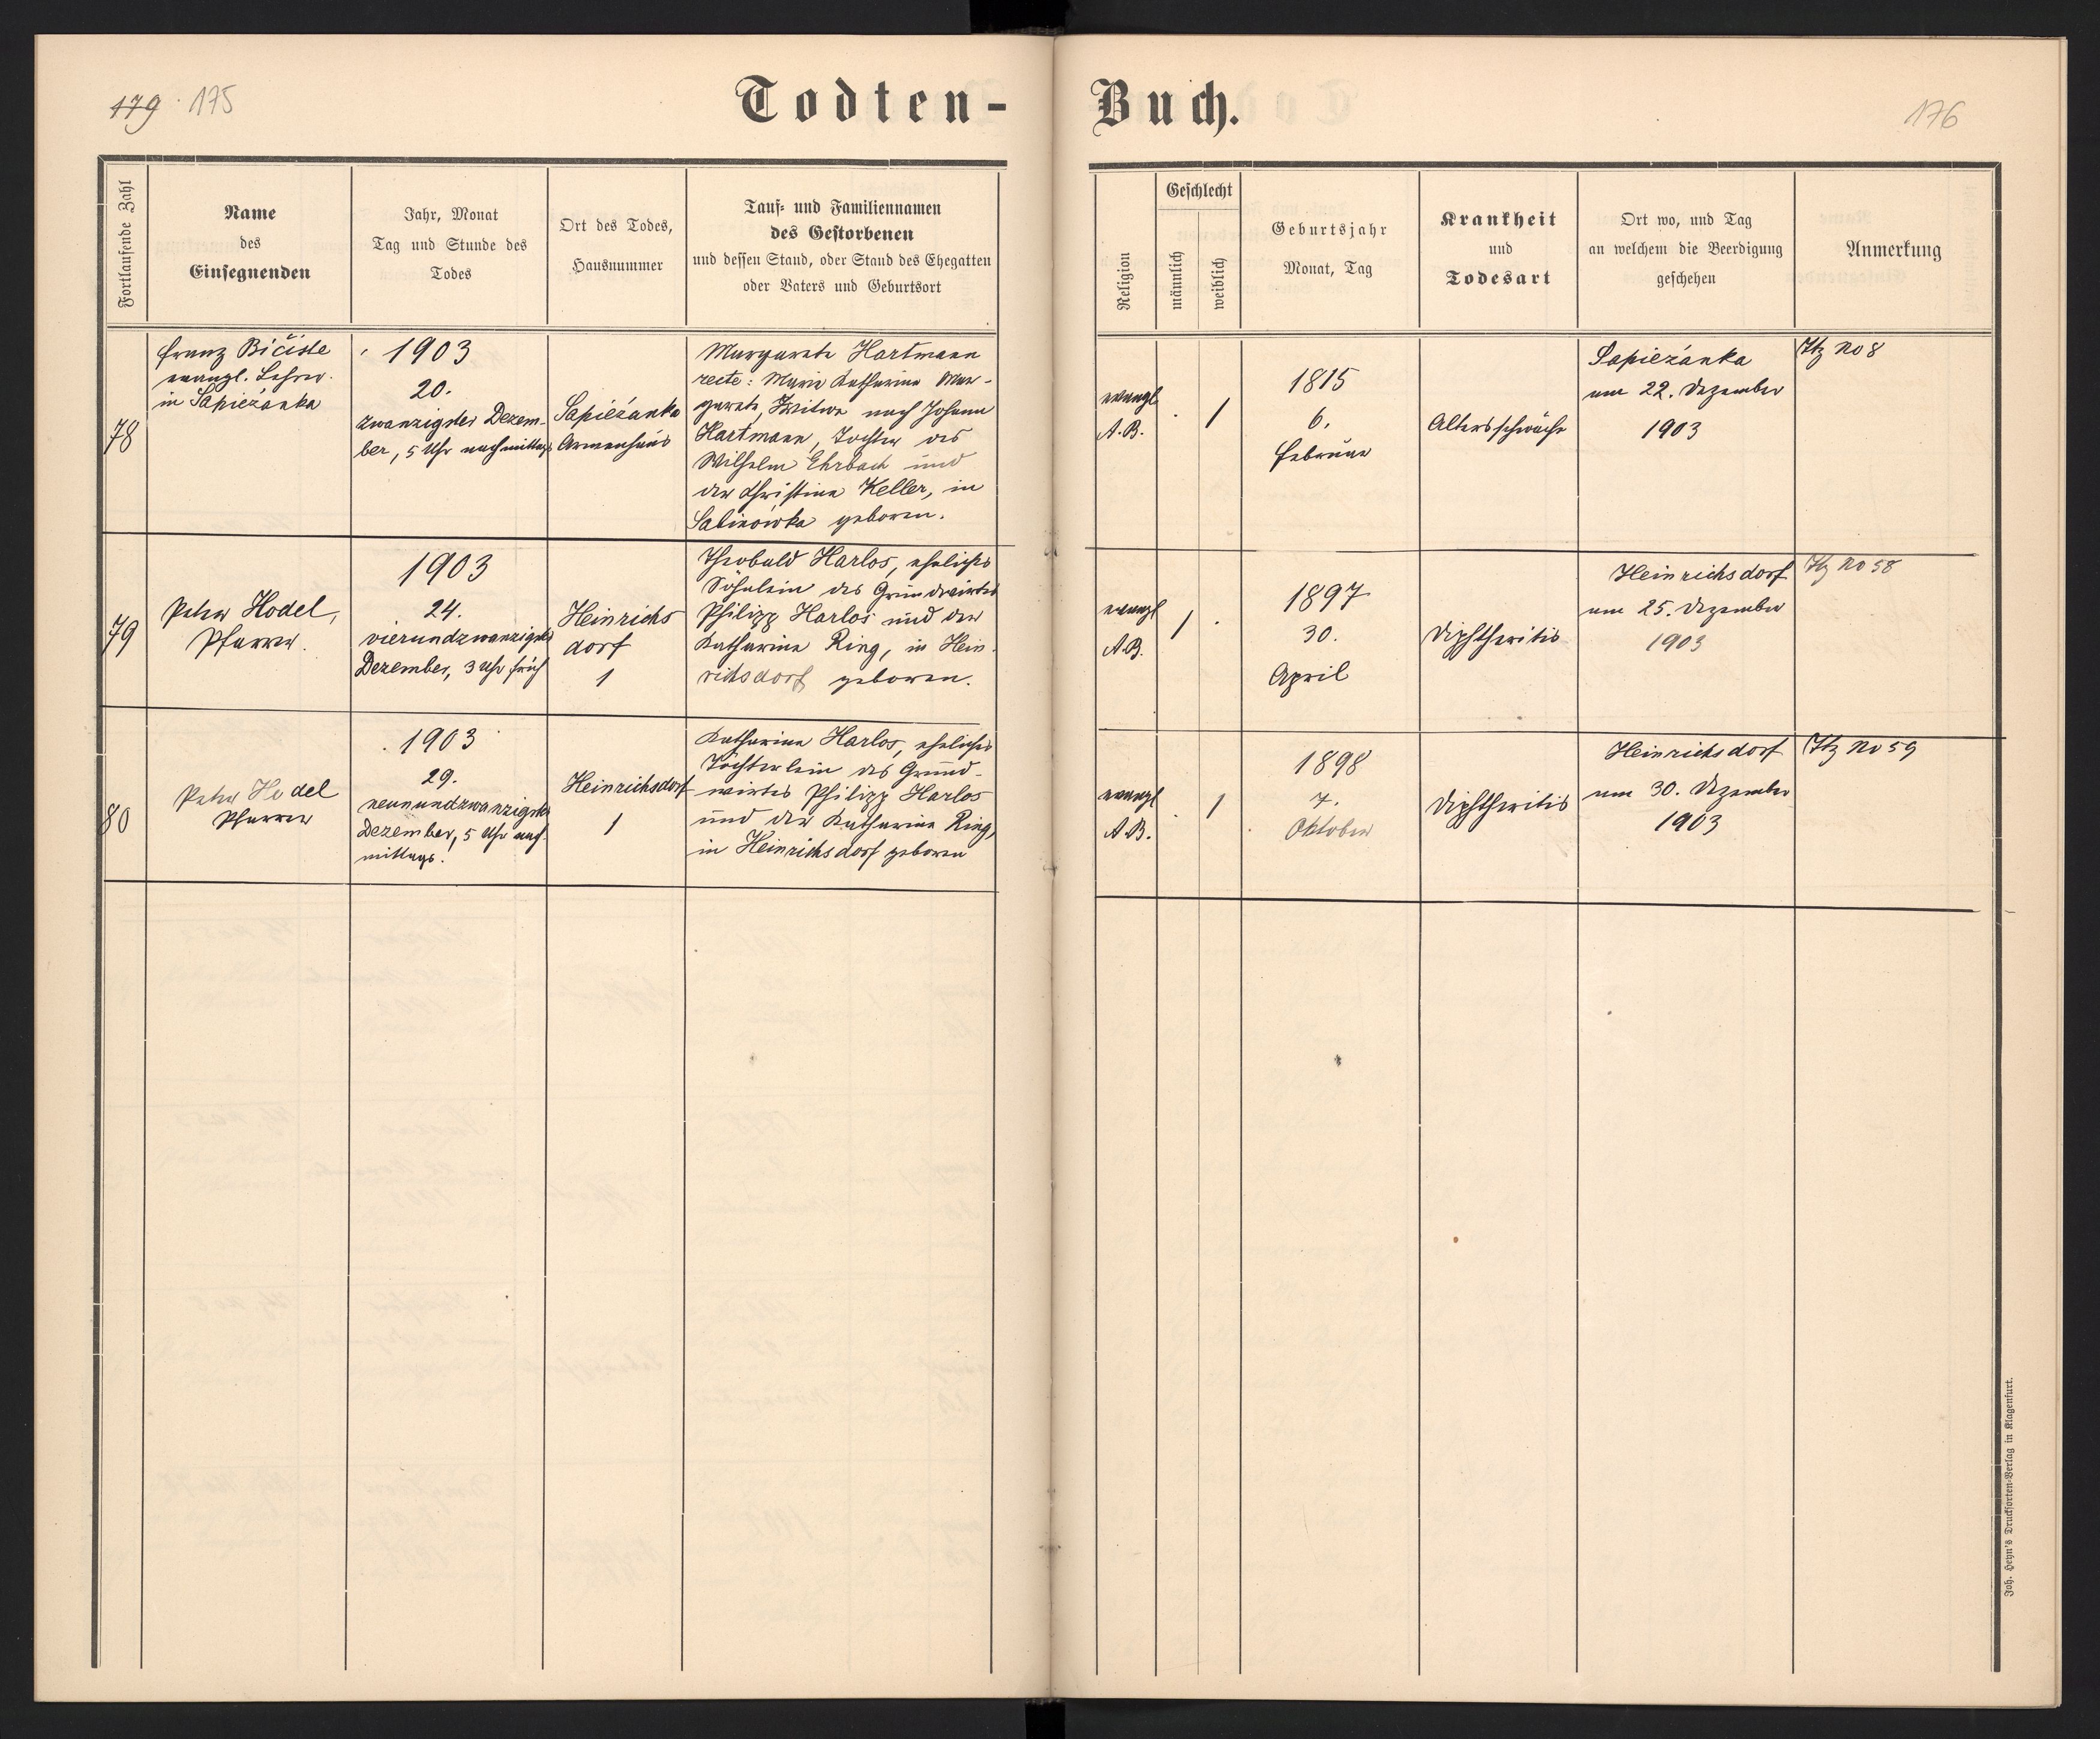 179 175
Todten-
Fortlaufende Zahl
Name
des
Einsegnenden
Jahr, Monat
Tag und Stunde des
Todes
Ort des Todes,
Hausnummer
Tauf- und Familiennamen
des Gestorbenen
und dessen Stand, oder Stand des Ehegatten
oder Vaters und Geburtsort
78
Franz Bičiste
evangl. Lehrer
in Sapieżanka
1903
20.
zwanzigster Dezem-
ber, 5 Uhr nachmittags
Sapieżanka
Armenhaus
Margareta Hartmann
recte: Maria Katharina Mar-
gareta, Witwe nach Johann
Hartmann, Tochter des
Wilhelm Ehrbach und
der Christine Keller, in
Sabinówka geboren.
79
Peter Hodel,
Pfarrer.
1903
24.
vierundzwanzigster
Dezember, 3 Uhr früh
Heinrichs
dorf
1
Theobald Harlos, eheliches
Söhnlein des Grundwirtes
Philipp Harlos und der
Katharina Ring, in Hein-
richsdorf geboren.
80
Peter Hodel
Pfarrer
1903
29.
neunundzwanzigster
Dezember, 5 Uhr nach-
mittags.
Heinrichsdorf
1
Katharina Harlos, eheliches
Töchterlein des Grund-
wirtes Philipp Harlos
und der Katharina Ring,
in Heinrichsdorf geboren
Buch.
176
Religion
Geschlecht
männlich
weiblich
Geburtsjahr
Monat, Tag
Krankheit
und
Todesart
Ort wo, und Tag
an welchem die Beerdigung
geschehen
Anmerkung
evangl
A.B.
. 1
1815
6.
Februar
Altersschwäche
Sapieżanka
am 22. Dezember
1903
Itz No 8
evangl
A.B.
1 .
1897
30.
April
Diphtheritis
Heinrichsdorf
am 25. Dezember
1903
Itz No 58
evangl
A.B.
. 1
1898
7.
Oktober
Diphtheritis
Heinrichsdorf
am 30. Dezember
1903
Itz No 59
Joh. Heyn's Drucksorten-Verlag in Klagenfurt.